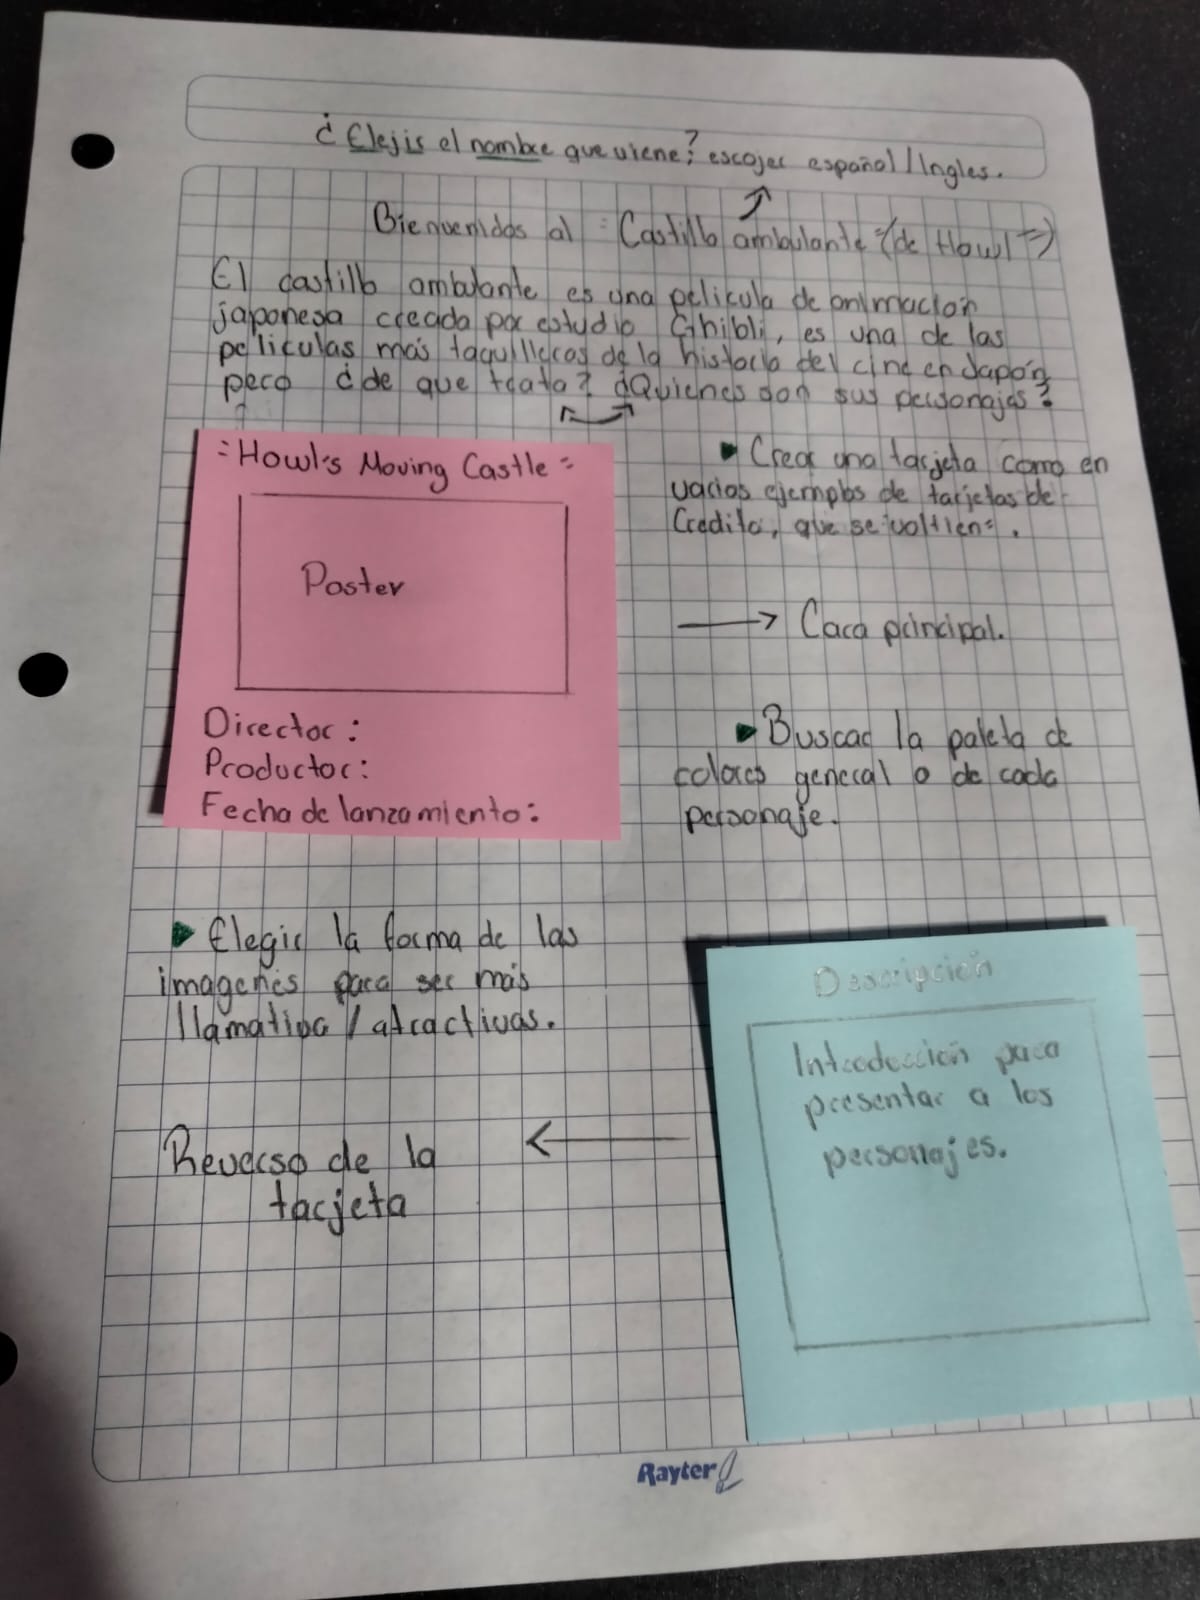 ¿Elejis el nombre que viene? escojer español/Ingles.
Bienvenidos al "Castillo ambulante "(de Howl")
El castillo ambulante es una pelicula de animación
japonesa creada por estudio Ghibli, es una de las
peliculas más taquilleras de la historia del cine en Japón,
pero ¿de que trata? ¿Quienes son sus personajes?
= Howl's Moving Castle =
Poster
Director:
Productor:
Fecha de lanzamiento:
Crear una tarjeta como en
varios ejemplos de tarjetas de
Credito, que se voltien.
Cara principal.
Buscar la paleta de
colores general o de cada
personaje.
Elegir la forma de las
imagenes para ser más
llamativa / atractivas.
Reverso de la
tarjeta
Descripción
Introducción para
presentar a los
personajes.
Rayter